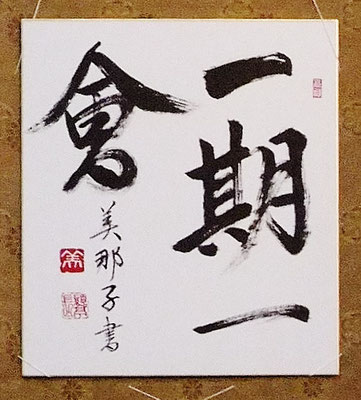 一期一
會
美那子書
美